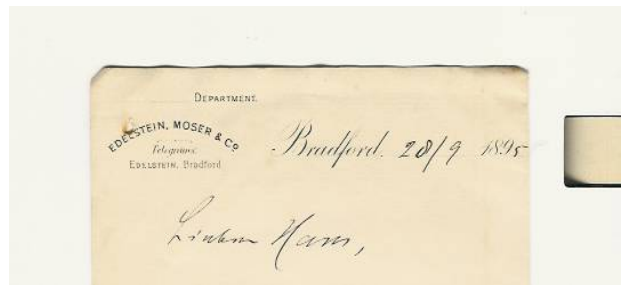 DEPARTMENT.
EDELSTEIN, MOSER & Co
Telegrams:
EDELSTEIN, Bradford
Bradford. 28/9 1895
Lieber Hans,